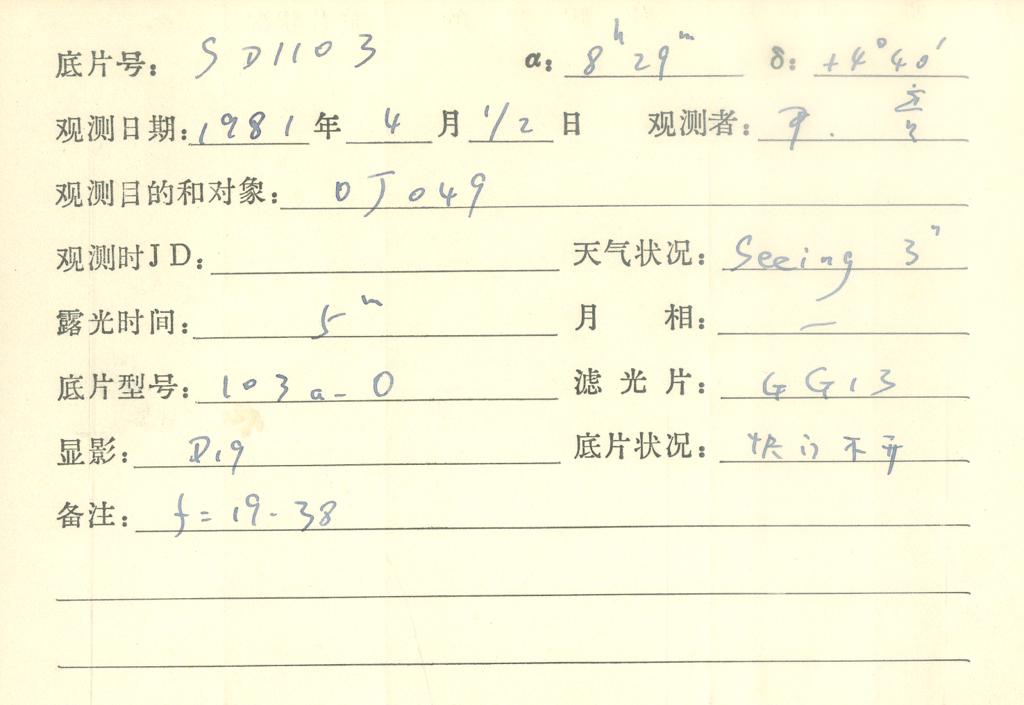 底片号: SD1103 α: 8h29m δ: +4°40′
观测日期: 1981 年 4 月 1/2 日 观测者:
观测目的和对象: OJ049
观测时JD: 天气状况: Seeing 3"
露光时间: 5m 月 相: —
底片型号: 103a-O 滤光片: GG13
显影: D19 底片状况: 快门不开
备注: f=19.38